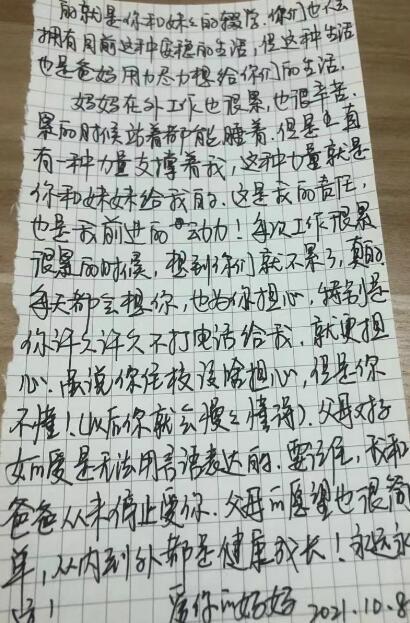 的就是你和妹妹的辍学。你们也不会
拥有目前这种安稳的生活，但这种生活
也是爸妈用力尽力想给你们的生活。
妈妈在外工作也很累，也很辛苦。
累的时候站着都能睡着。但是一直
有一种力量支撑着我，这种力量就是
你和妹妹给我的。这是我的责任，
也是我前进的动力！每次工作很累
很累的时候，想到你们就不累了，真的
每天都会想你，也为你担心，特别是
你许久许久不打电话给我，就更担
心。虽说你住校没啥担心，但是你
不懂！（以后你就会慢慢懂得）。父母对孩子
的爱是无法用言语表达的。要记住，我和
爸爸从未停止爱你。父母的愿望也很简
单，从内到外都是健康成长！永远永
远！
爱你的妈妈 2021.10.8